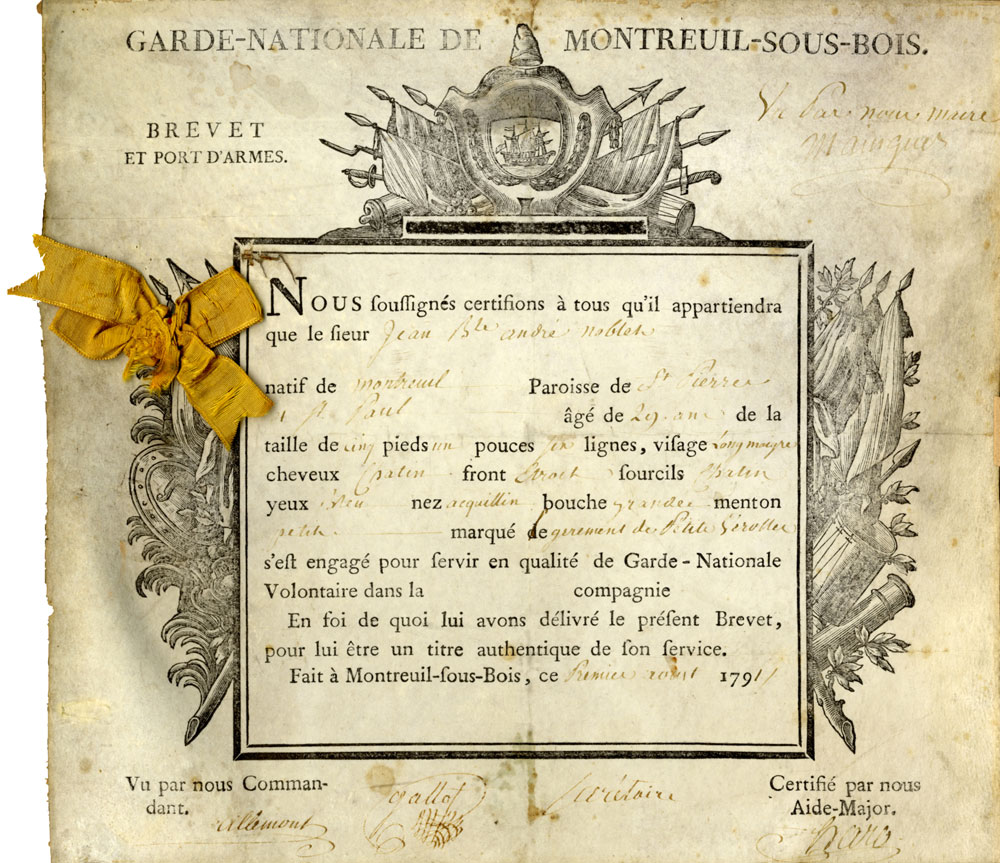 GARDE-NATIONALE DE MONTREUIL-SOUS-BOIS.
BREVET
ET PORT D'ARMES.
Vu Par nous maire
NOUS ſouſſignés certifions à tous qu'il appartiendra
que le ſieur Jean Bte andré noblet
natif de montreuil Paroisse de St Pierre
et St Paul âgé de 29 ans de la
taille de cinq pieds un pouces six lignes, viſage Long maigre
cheveux Chatin front Etroit ſourcils Chatin
yeux bleu nez acquillin bouche grande menton
petit marqué de gerement de Petite Verolle
s'eſt engagé pour ſervir en qualité de Garde-Nationale
Volontaire dans la compagnie
En foi de quoi lui avons délivré le préſent Brevet,
pour lui être un titre authentique de ſon ſervice.
Fait à Montreuil-ſous-Bois, ce Premier aoust 1791
Vu par nous Comman-
dant.
allemont
Gallot
Secrétaire
Certifié par nous
Aide-Major.